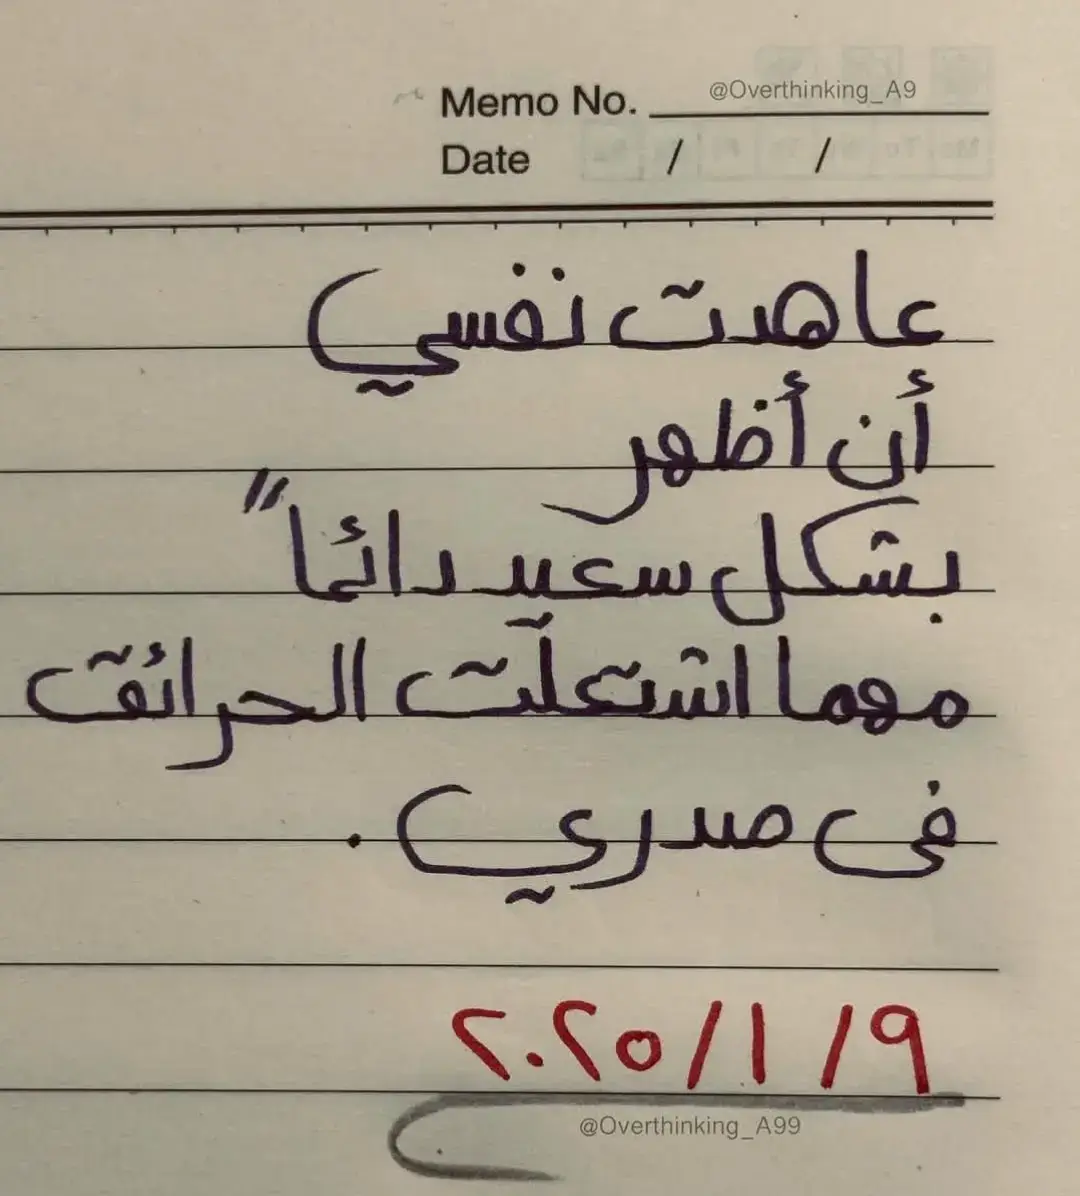 Memo No. @Overthinking_A9
Date / /
عاهدت نفسي
أن أظهر
بشكل سعيد دائماً
مهما اشتعلت الحرائق
في صدري .
٢٠٢٥/١/٩
@Overthinking_A99